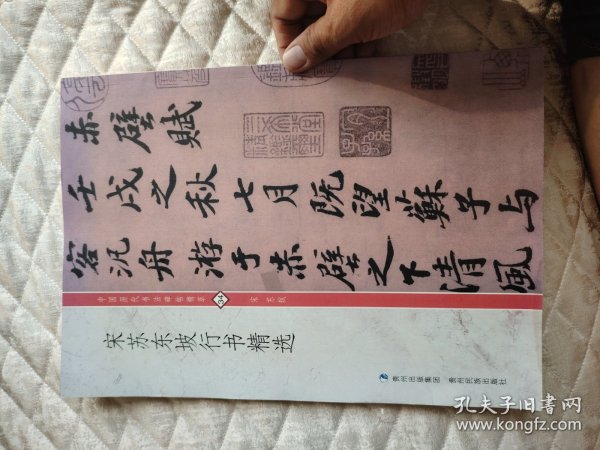 赤壁賦
壬戌之秋七月既望蘇子与
客汎舟游于赤壁之下清風
中国历代书法碑帖 34 宋 苏轼
宋苏东坡行书精选
贵州出版集团 贵州民族出版社
孔夫子旧书网
www.kongfz.com